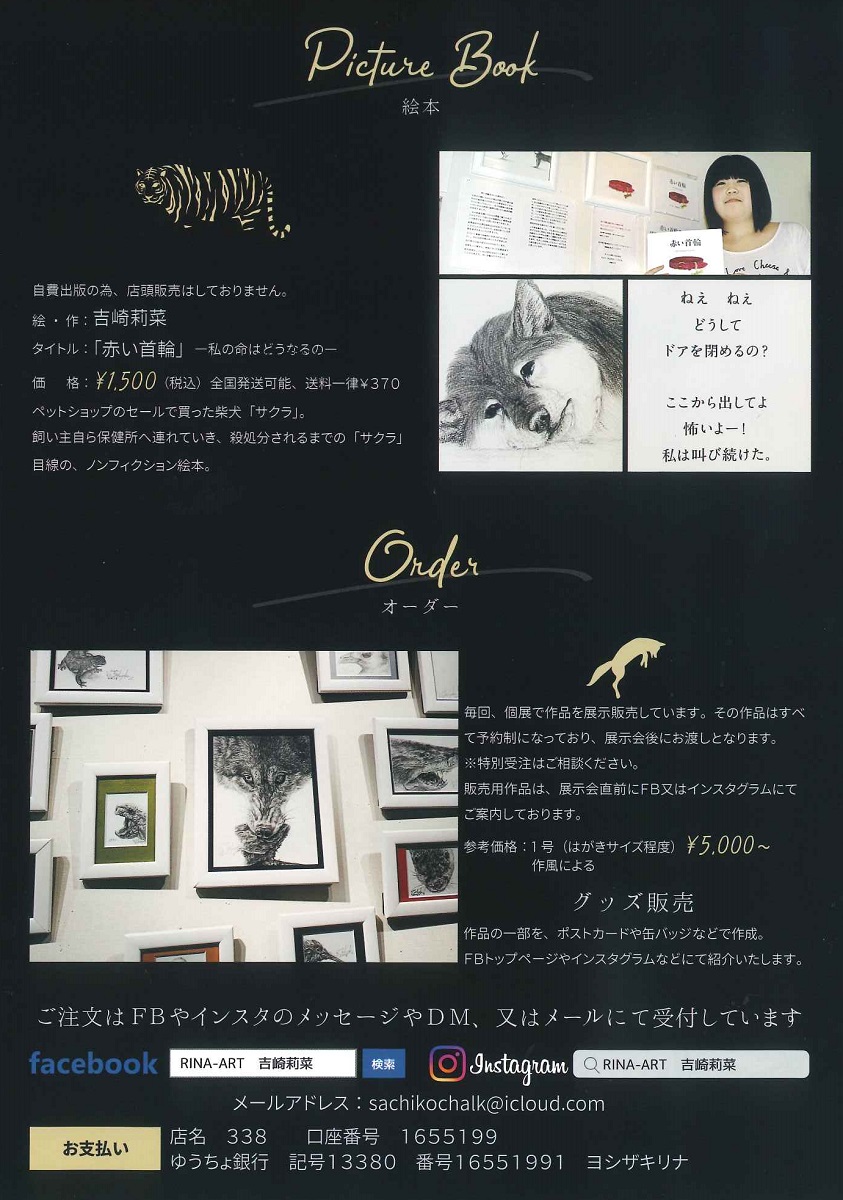 Picture Book
絵本
自費出版の為、店頭販売はしておりません。
絵・作：吉崎莉菜
タイトル：「赤い首輪」 ―私の命はどうなるの―
価　格：¥1,500（税込）全国発送可能、送料一律¥370
ペットショップのセールで買った柴犬「サクラ」。
飼い主自ら保健所へ連れていき、殺処分されるまでの「サクラ」
目線の、ノンフィクション絵本。
赤い首輪
ねえ　ねえ
どうして
ドアを閉めるの？
ここから出してよ
怖いよー！
私は叫び続けた。
Order
オーダー
毎回、個展で作品を展示販売しています。その作品はすべ
て予約制になっており、展示会後にお渡しとなります。
※特別受注はご相談ください。
販売用作品は、展示会直前にFB又はインスタグラムにて
ご案内しております。
参考価格：1号（はがきサイズ程度）¥5,000～
作風による
グッズ販売
作品の一部を、ポストカードや缶バッジなどで作成。
FBトップページやインスタグラムなどにて紹介いたします。
ご注文はFBやインスタのメッセージやDM、又はメールにて受付しています
facebook RINA-ART　吉崎莉菜 検索 Instagram RINA-ART　吉崎莉菜
メールアドレス：sachikochalk@icloud.com
お支払い
店名　338　　口座番号　1655199
ゆうちょ銀行　記号13380　番号16551991　ヨシザキリナ